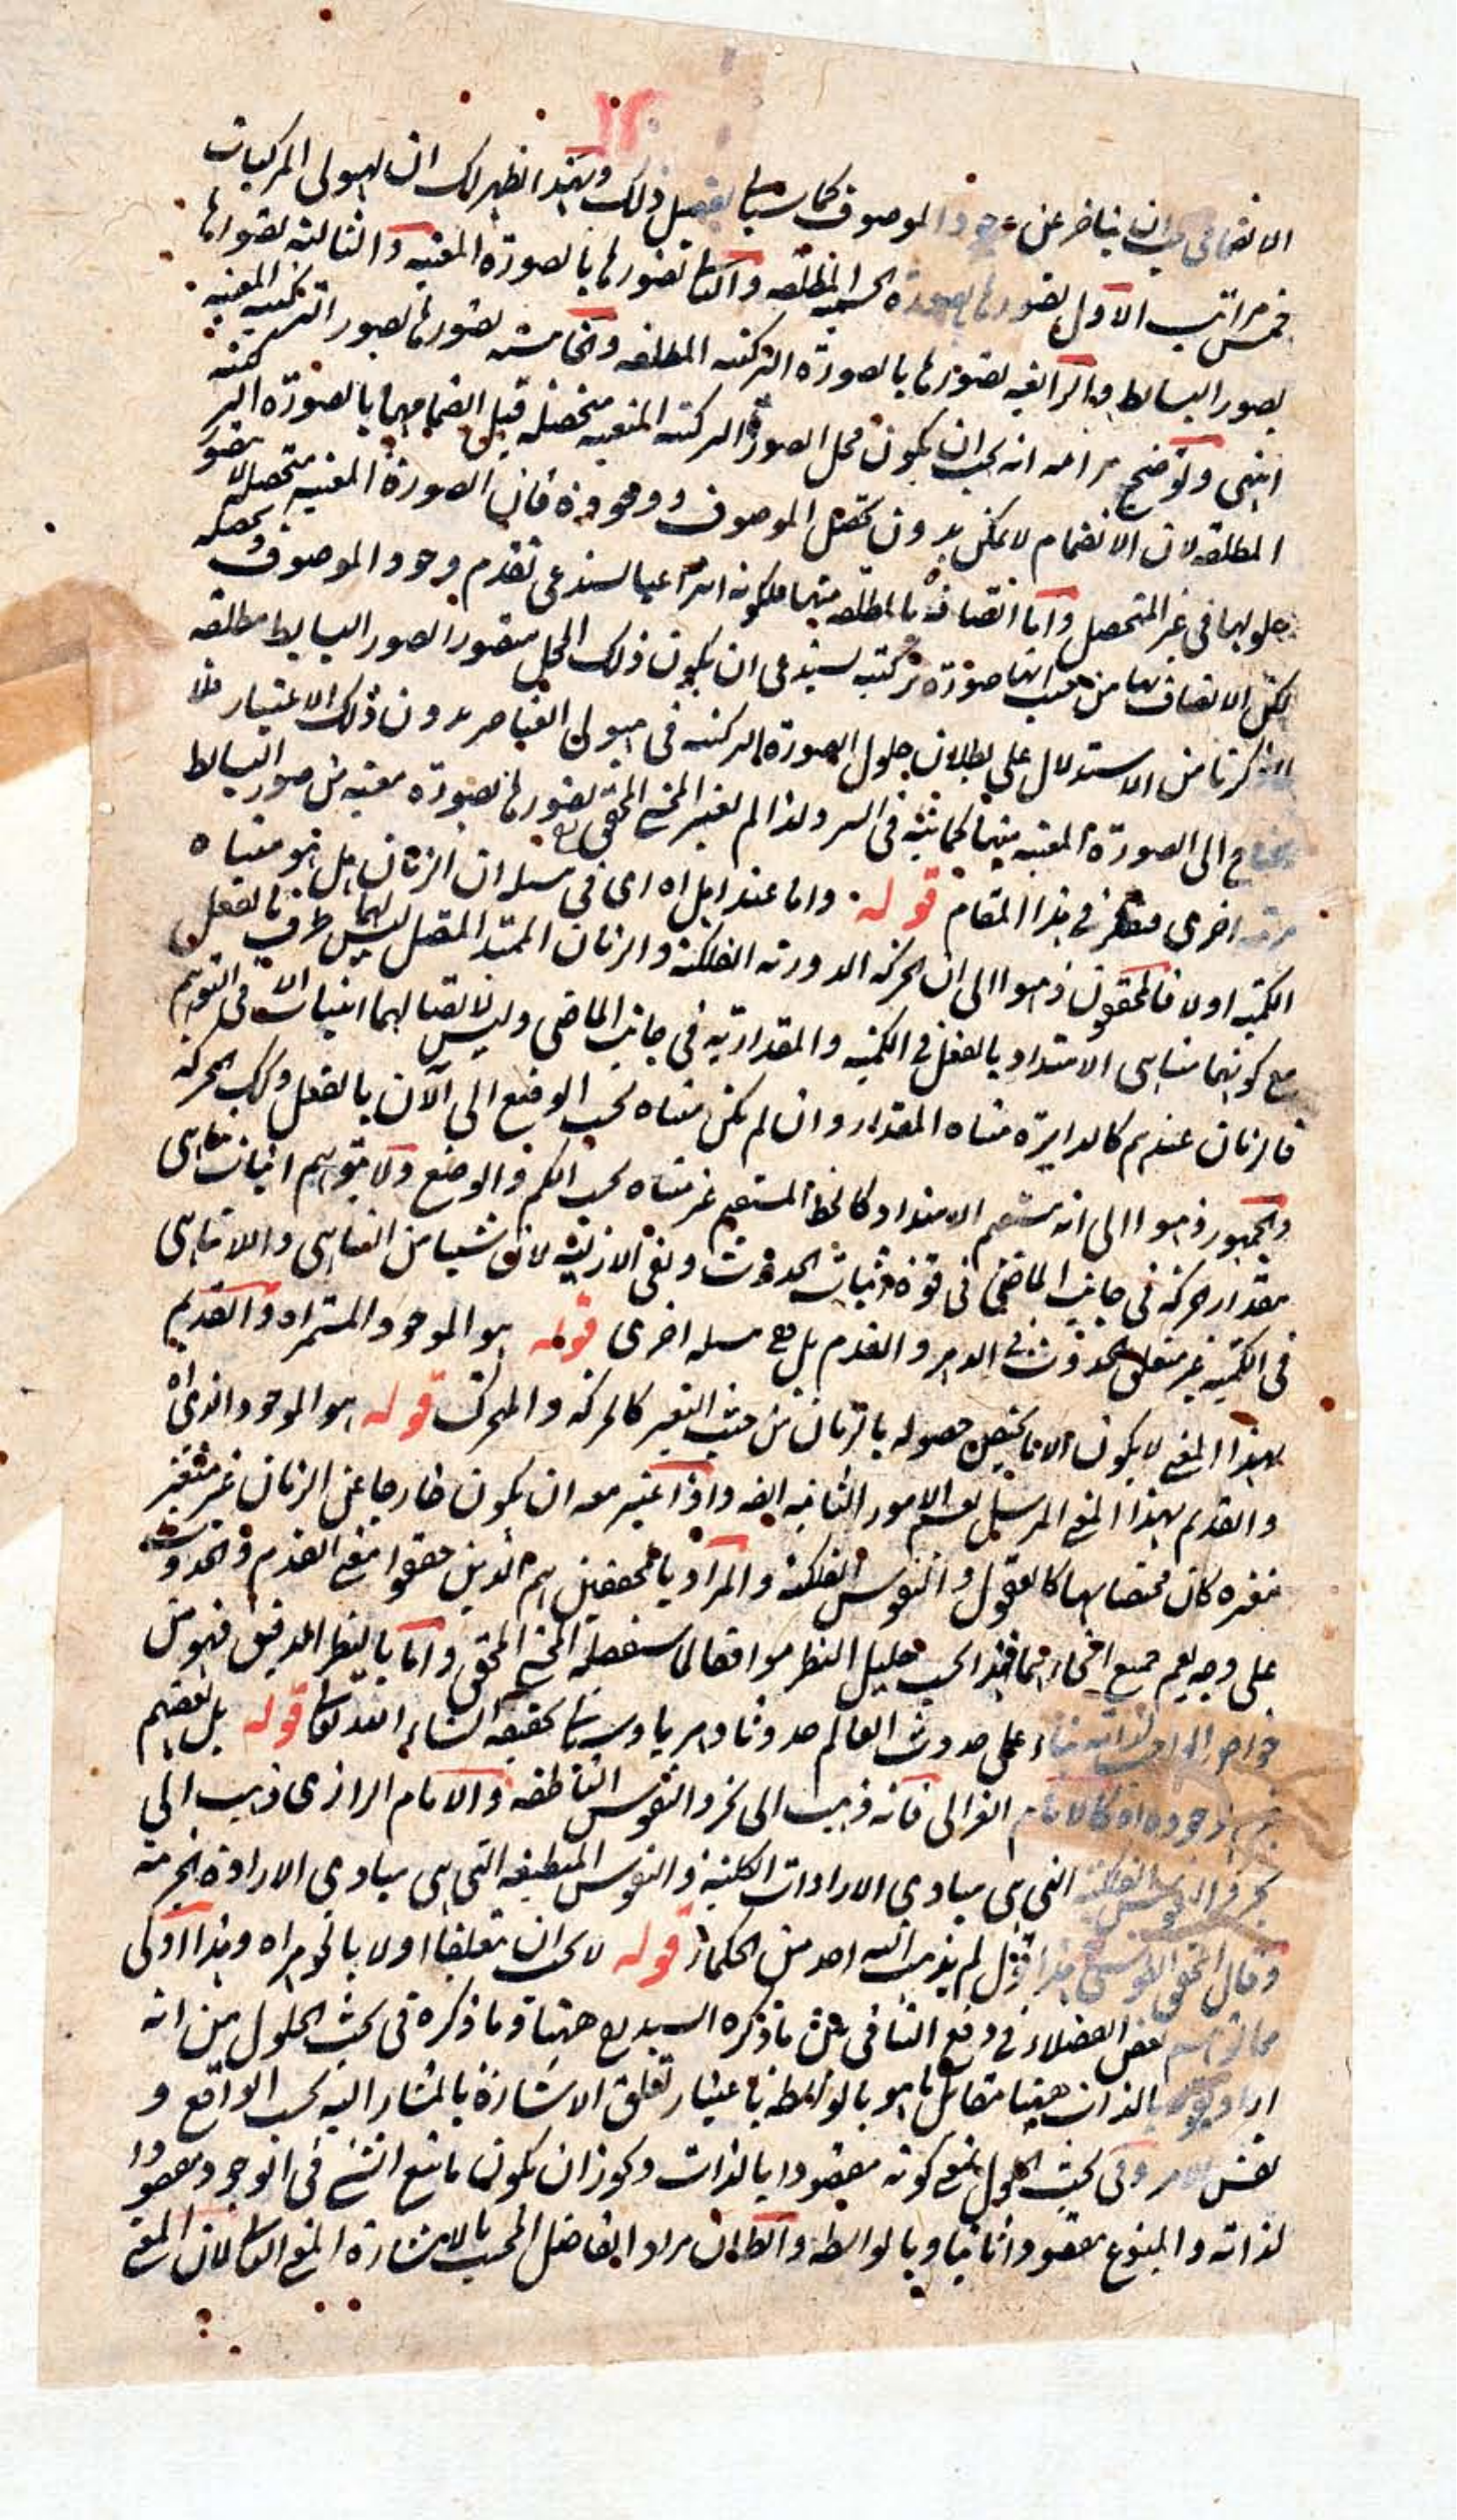 ١٢
الانضمامي يجب ان يتاخر عن وجود الموصوف كما سياتي تفصيل ذلك وبهذا ظهر لك ان لهيولى المركبات
خمس مراتب الاول تصورها بصورة الجسمية المطلقة والثانية تصورها بالصورة المعينة والثالثة تصورها
بصور البسايط والرابعة تصورها بالصورة التركيبية المطلقة والخامسة تصورها بصور التركيبية المعينة
انتهى وتوضيح مرامه انه يجب ان يكون محل الصورة التركيبية المعينة متحصلة قبل انضمامها بالصورة التركيبية
المطلقة لان الانضمام لا يمكن بدون تحصل الموصوف ووجوده فان الصورة المعينة متحصلة لا يتصور
حلولها في غير المتحصل واما اتصافه بالمطلقة منهما فلكونه انتزاعيا لا يستدعي تقدم وجود الموصوف وتحصله
لكن الاتصاف بها من حيث انها صورة تركيبية يستدعي ان يكون ذلك المحل متصورا لصور البسايط مطلقة
لما ذكرنا من الاستدلال على بطلان حلول الصورة التركيبية في هيولى العناصر بدون ذلك الاعتبار فلا
يحتاج الى الصورة المعينة منها كما نثبه في السر ولذا لم يعتبر المحشي المحقق تصورها بصورة معينة من صور البسايط
مرتبة اخرى فتفكر في هذا المقام قوله واما عند اهل اه اى في مسئلة ان الزمان هل هو متناه
الكمية اولا فالمحققون ذهبوا الى ان الحركة الدورية الفلكية والزمان الممتد المتصل ليس لهما طرف بالفعل
مع كونهما متناهى الامتداد بالفعل في الكمية والمقدارية في جانب الماضي وليس لاتصالهما انبتات الا في التوهم
فالزمان عندهم كالدايرة متناه المقدار وان لم يكن متناه بحسب الوضع الى الآن بالفعل وكذلك الحركة
والجمهور ذهبوا الى انه مستقيم الامتداد كالخط المستقيم غير متناه بحسب الكم والوضع ولا يتوهم ان اثبات تناهى
مقدار حركة في جانب الماضي في قوة اثبات الحدوث ونفي الازلية لان شيئا من التناهى واللاتناهى
في الكمية غير متعلق بحدوث في الدهر والقدم بل هي مسئلة اخرى قوله هو الموجود المستمر اه والقديم
بهذا المعنى لا يكون الا ما يختص حصوله بالزمان من حيث التغير كالحركة والمتحرك قوله هو الموجود الذى اه
والقديم بهذا المعنى المرسل يعم الامور الثانية ايضا واذا اعتبر معه ان يكون خارجا عن الزمان غير متغير
بتغيره كان مختصا بها كالعقول والنفوس الفلكية والمراد بالمحققين هم الذين حققوا معنى القدم والحدوث
على وجه يعم جميع انحائهما فهذا بحسب جليل النظر موافقا لما سيفصله المحشي المحقق واما بالنظر الدقيق فهو من
خواص الواجب لذاته بناء على حدوث العالم حدوثا دهريا وسياتي تحقيقه انشاء الله تعالى قوله بل بعضهم
وجوده اه كالامام الغزالى فانه ذهب الى تجرد النفوس الناطقة والامام الرازى ذهب الى
تجرد النفوس الفلكية التي هى مبادى الارادات الكلية والنفوس المنطبعة التي هى مبادى الارادة الجزئية
وقال المحقق الطوسى هذا قول لم يذهب اليه احد من الحكماء قوله لا يجب ان تعلقا اولا بالجوهر اه وهذا اولى
مما توهم بعض الفضلاء في دفع التنافى بين ما ذكره السيد رح ههنا وما ذكره في بحث الحلول من انه
اراد بقوله بالذات ههنا مقابل ما هو بالواسطة باعتبار تعلق الاشارة بالمشار اليه بحسب الواقع و
نفس الامر وفي بحث الحلول بمعنى كونه مقصودا بالذات ويجوز ان يكون ما يتبع الشئ في الوجود مقصودا
لذاته والمتبوع مقصودا ثانيا وبالواسطة والظ ان مراد الفاضل المحشي بالاشارة المعنى الثانى لان المعنى